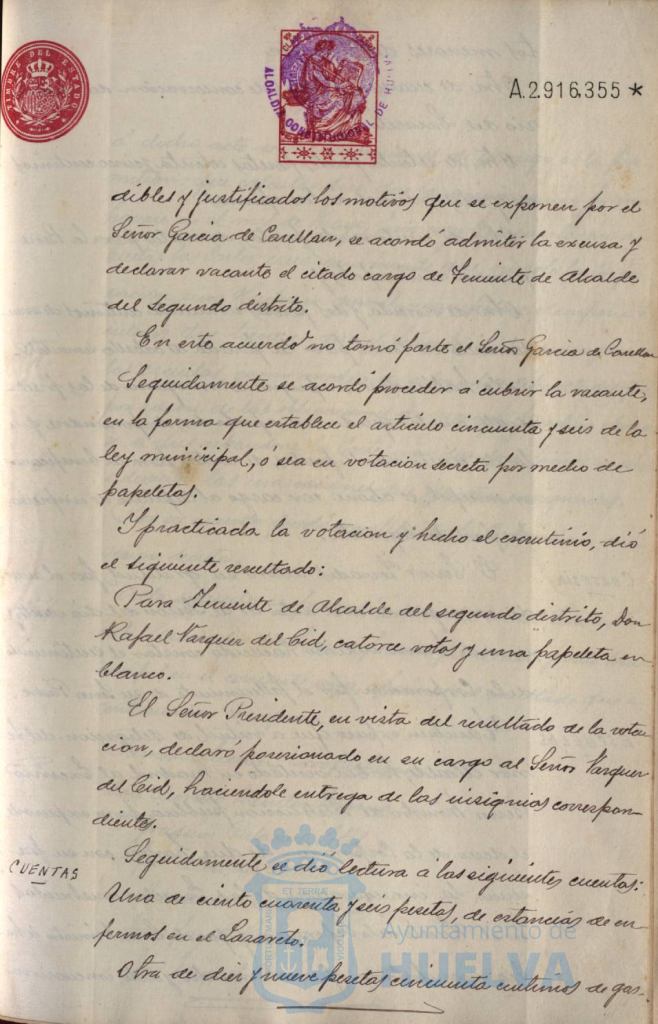 TIMBRE DEL ESTADO
ALCALDIA CONSTITUCIONAL DE HU
A.2.916.355 *
dibles y justificados los motivos que se exponen por el
Señor Garcia de Carellan, se acordó admitir la excusa y
declarar vacante el citado cargo de Teniente de Alcalde
del segundo distrito.
En este acuerdo no tomó parte el Señor Garcia de Carellan
Seguidamente se acordó proceder á cubrir la vacante,
en la forma que establece el articulo cincuenta y seis de la
ley municipal, ó sea en votacion secreta por medio de
papeletas.
Y practicada la votacion y hecho el escrutinio, dió
el siguiente resultado:
Para Teniente de Alcalde del segundo distrito, Don
Rafael Vazquez del Cid, catorce votos y una papeleta en
blanco.
El Señor Presidente, en vista del resultado de la vota-
cion, declaró posesionado en su cargo al Señor Vazquez
del Cid, haciendole entrega de las insignias correspon-
dientes.
CUENTAS
Seguidamente se dió lectura á las siguientes cuentas:
Una de ciento cuarenta y seis pesetas, de estancias de en-
fermos en el Lazareto.
Otra de diez y nueve pesetas cincuenta centimos de gas-
Ayuntamiento de
HUELVA